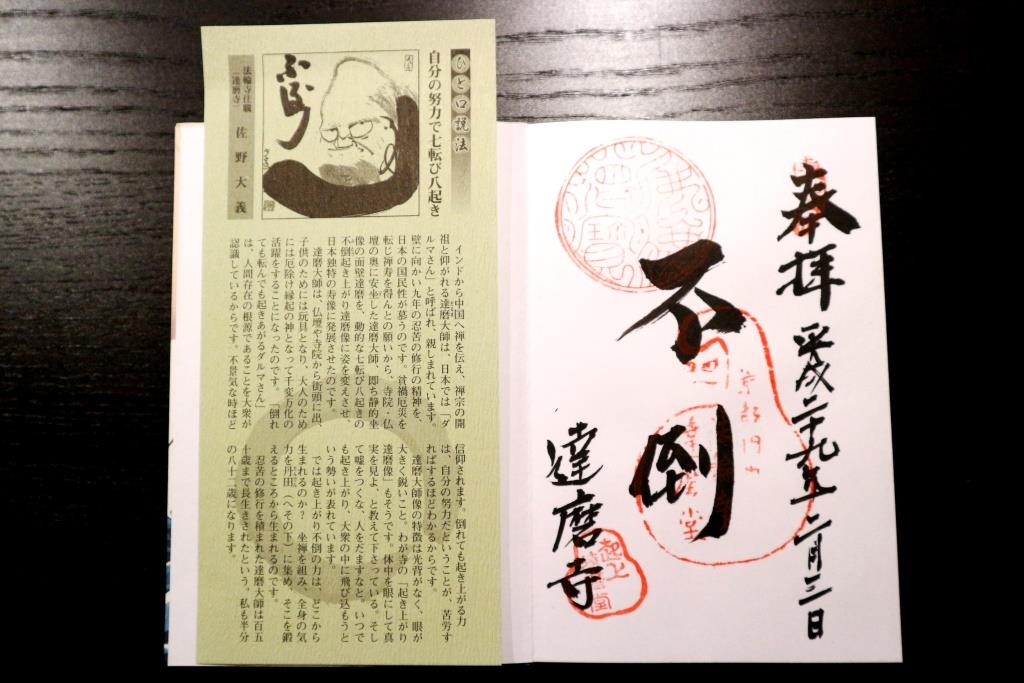 奉拝
平成二十九年二月三日
不倒
達磨寺
ひと口説法
自分の努力で七転び八起き
法輪寺住職
(達磨寺)
佐野大義
インドから中国へ禅を伝え、禅宗の開
祖と仰がれる達磨大師は、日本では「ダ
ルマさん」と呼ばれ、親しまれています。
壁に向かい九年の忍苦の修行の精神を、
日本の国民性が慕うのです。貧禍厄災を
転じ禅寿を得んとの願いから、寺院・仏
壇の奥に安坐した達磨大師、即ち静的坐
像の面壁達磨を、動的な七転び八起きの
不倒起き上がり達磨像に姿を変えさせ、
日本独特の寿像に発展させたのです。
達磨大師は、仏壇や寺院から街頭に出、
子供のためには玩具となり、大人のため
には厄除け縁起の神となって千変万化の
活躍をすることになったのです。「倒れ
ても転んでも起きあがるダルマさん」
は、人間存在の根源であることを大衆が
認識しているからです。不景気な時ほど
信仰されます。倒れても起き上がる力
は、自分の努力だということが、苦労す
ればするほどわかるからです。
達磨大師像の特徴は光背がなく、眼が
大きく鋭いこと。わが寺の「起き上がり
達磨像」もそうです。体中を眼にして真
実を見よ、と教えて下さっている。そし
て嘘をつくな、人をだますなと。いつで
も起き上がり、大衆の中に飛び込もうと
いう勢いが表れています。
では起き上がり不倒の力は、どこから
生まれるのか？　坐禅を組み、全身の気
力を丹田（へその下）に集め、そこを鍛
えるところから生まれるのです。
忍苦の修行を積まれた達磨大師は百五
十歳まで長生きされたという。私も半分
の八十二歳になります。